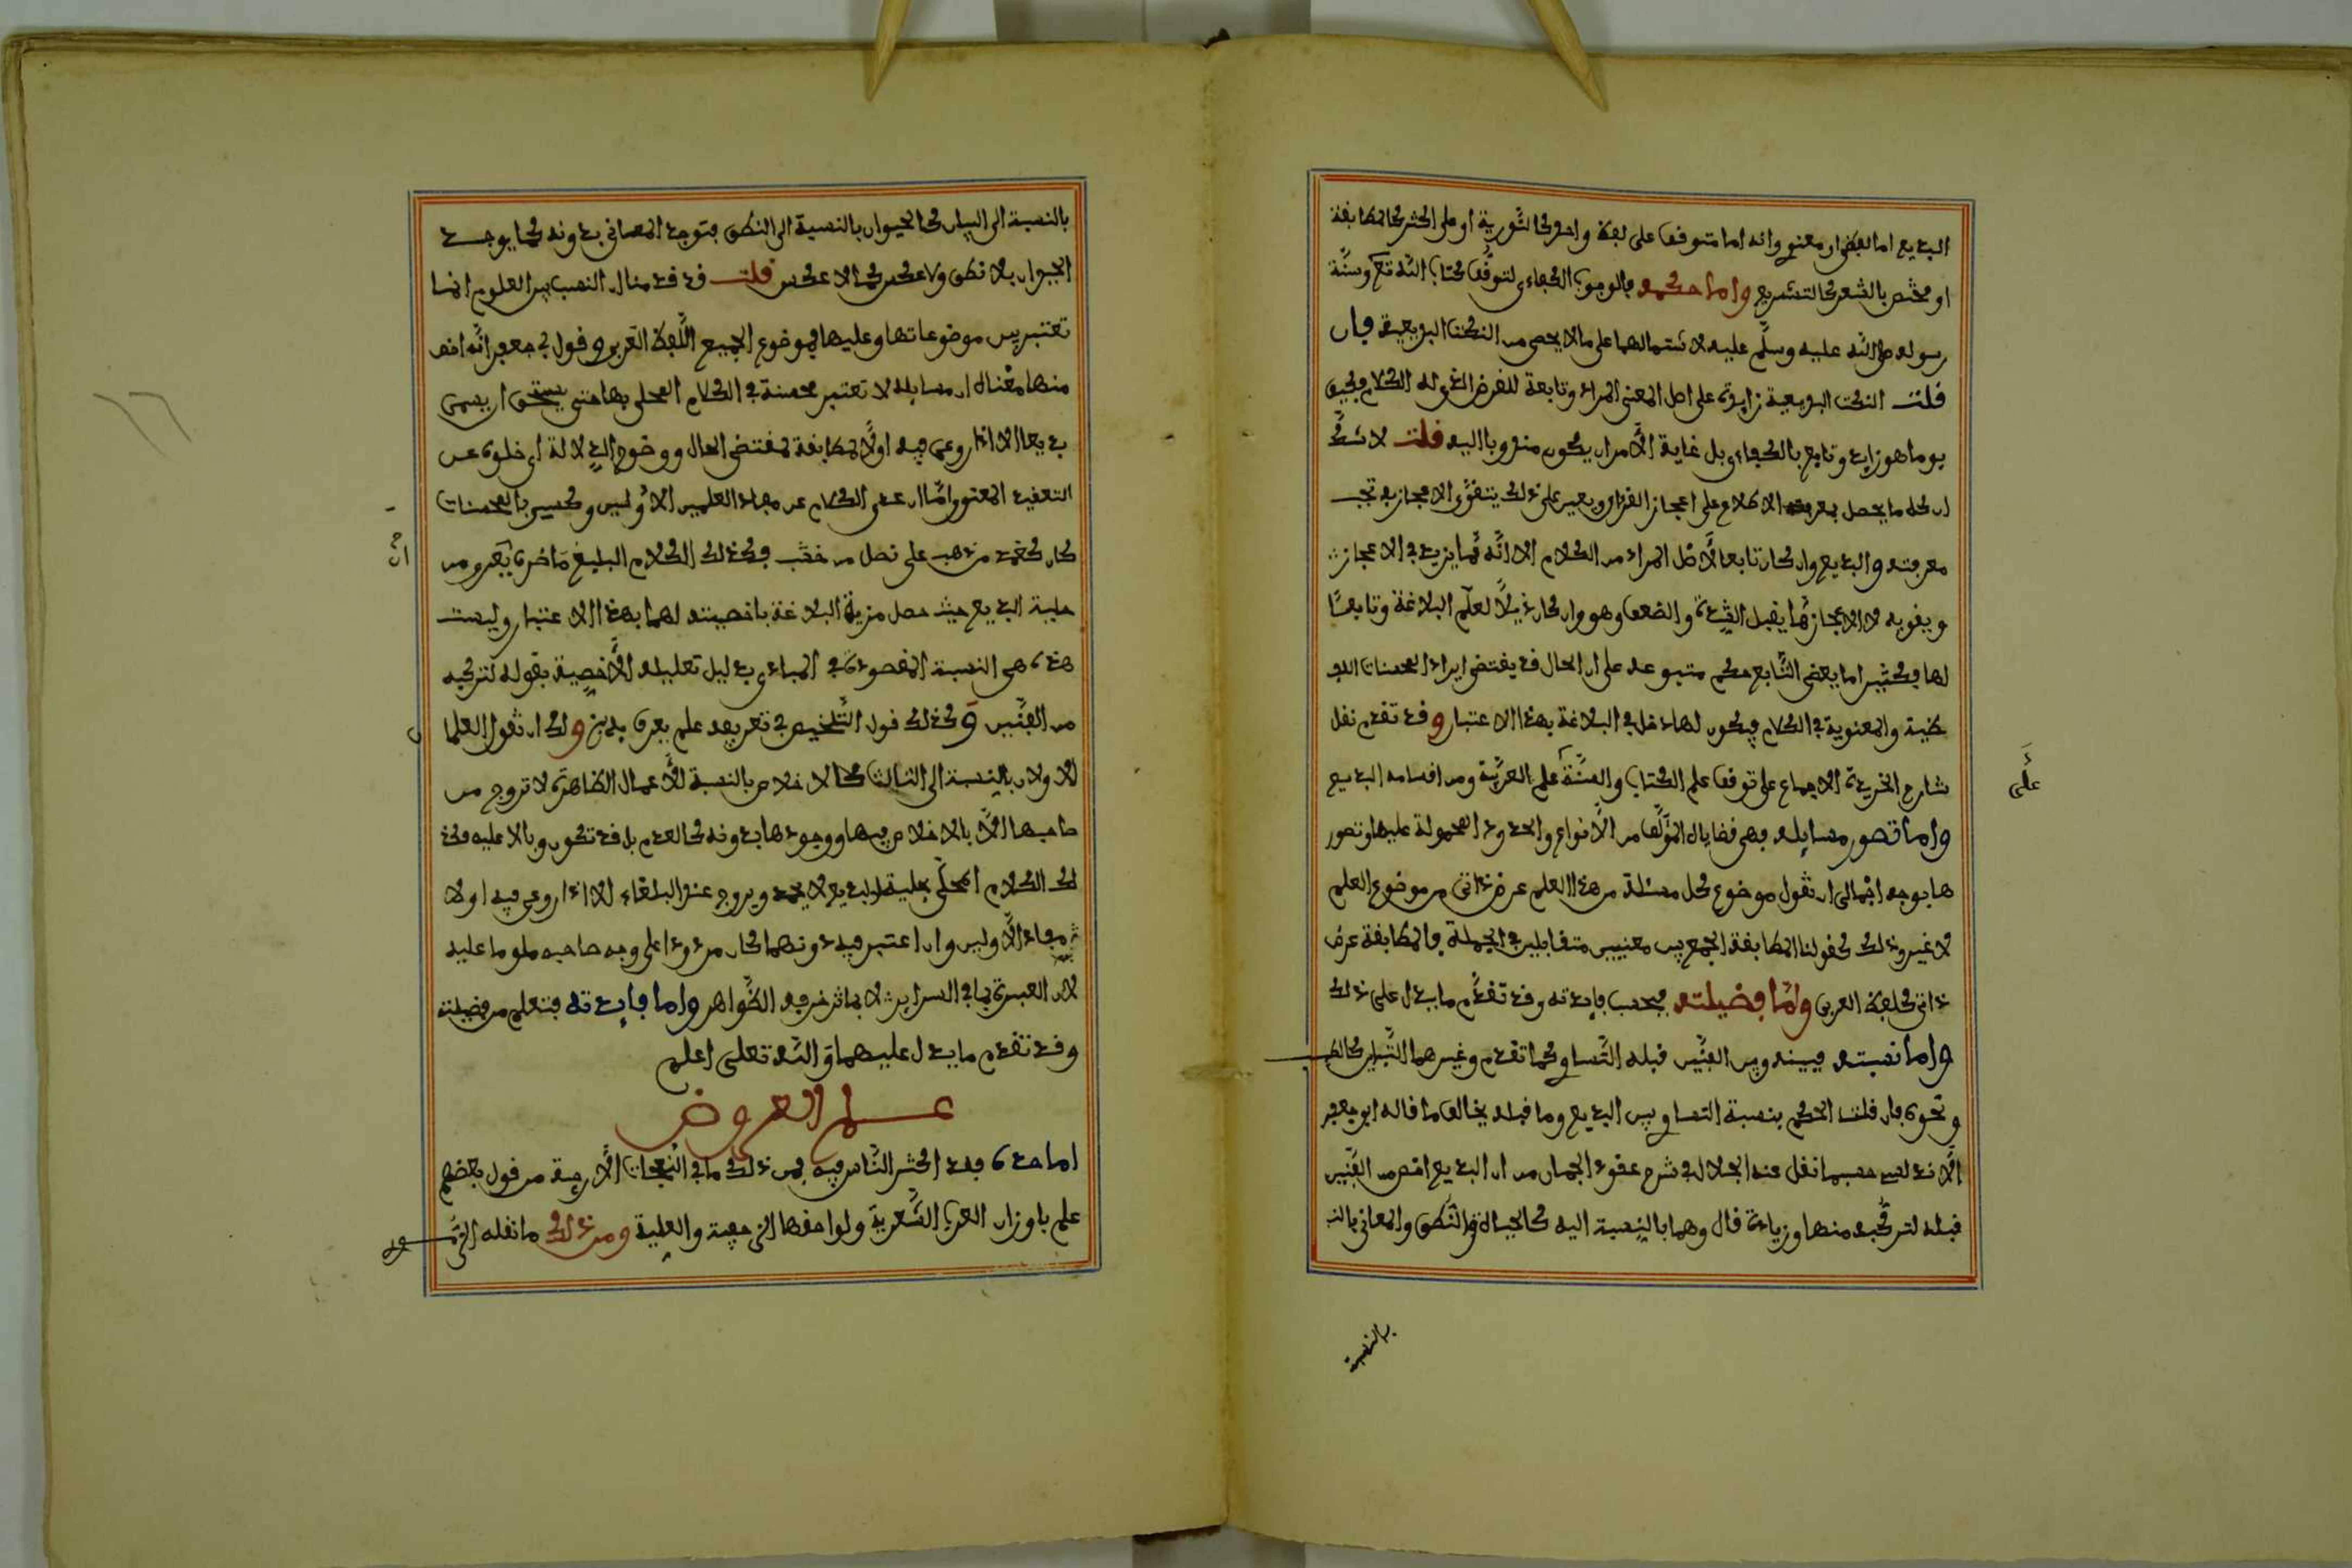 البديع اما لفظي او معنوي وانه اما متوقف على لفظ واحد كالتورية او على اكثر كالمطابقة
او مختص بالشعر كالتشريع واما حكمه فالوجوب الكفاءي لتوقف كتاب الله تع وسنة
رسوله صلى الله عليه وسلم عليه لاشتمالهما على ما لا يحصى من النكت البديعية فان
قلت النكت البديعية زايدة على اصل المعنى المراد وتابعة للغرض الذي له الكلام فكيف
يوما هو زايد وتابع بالكفاءي بل غاية الامر ان يكون مندوبا اليه قلت لا شك
ان كل ما يحصل بمعرفته الاطلاع على اعجاز القران ويعين على ذلك يتقوى الاعجاز به تجب
معرفته والبديع وان كان تابعا لاصل المراد من الكلام الا انه مما يزيد في الاعجاز
ويقويه لان الاعجاز مما يقبل الشدة والضعف وهو وان كان ذيلا لعلم البلاغة وتابعا
لها فكثيرا ما يعطى التابع حكم متبوعه على ان الحال قد يقتضي ايراد المحسنات اللفـ
ـظية والمعنوية في الكلام فيكون لها دخل في البلاغة بهذا الاعتبار وقد تقدم نقل
شارح الخريدة الاجماع على توقف علم الكتاب والسنة على علم العربية ومن اقسامه البديع
على
واما تصور مسايله فهي قضاياه المؤلفة من الانواع والحدود المحمولة عليها وتصور
ها بوجه اجمالي ان تقول موضوع كل مسئلة من هذا العلم عرض ذاتي من موضوع العلم
لا غير وذلك كقولنا المطابقة الجمع بين معنيين متقابلين في الجملة فالمطابقة عرض
ذاتي للفظ العربي واما فضيلته فبحسب فايدته وقد تقدم ما يدل على ذلك
واما نسبته فبينه وبين الفنين قبله التساوي كما تقدم وغيرهما التباين كالطب
ونحوه فان قلت الحكم بنسبة التساوي بين البديع وما قبله يخالف ما قاله ابو جعفر
الاندلسي حسبما نقل عنه الجلال في شرح عقود الجمان من ان البديع اخص من الفنين
قبله لتركبه منها وزيادة قال وهما بالنسبة اليه كالحياة والنطق والمعاني بالنـ
بالنسبة
بالنسبة الى البيان كالحيوان بالنسبة الى النطق فتوجد المعاني بدونه كما يوجد
الحيوان بلا نطق ولا عكس كما لا عكس قلت قد قدمنا ان النسب بين العلوم انما
تعتبر بين موضوعاتها وعليها فموضوع الجميع اللفظ العربي وقول ابي جعفر انه اخص
منها معناه ان مسايله لا تعتبر محسنة في الكلام المحلى بها حتى يستحق ان يسمى
بديعا الا اذا روعي فيه اولا المطابقة لمقتضى الحال ووضوح الدلالة اي خلوه عن
التعقيد المعنوي واما ان عري الكلام عن مفاد العلمين الاولين وكسي بالمحسنات
كان كغمد من ذهب على نصل من خشب وكذلك الكلام البليغ ما ضره يعرو من
ان
حلية البديع حيث حصل مزية البلاغة باخصيته لهما بهذا الاعتبار وليست
هذه هي النسبة المقصودة في المبادي بدليل تعليله الاخصية بقوله لتركبه
من الفنين وكذلك قول التلخيص في تعريفه علم يعرف به الخ ولك ان تقول العلما
ن
الاولان بالنسبة الى الثالث كالاخلاص بالنسبة للاعمال الظاهرة لا تروج من
صاحبها الا بالاخلاص فيها ووجودها بدونه كالعدم بل قد تكون وبالا عليه فكذ
لك الكلام المحلى بحلية البديع لا يحمد ويروج عند البلغاء الا اذا روعي فيه اولا
مفاد الاولين وان اعتبر فيه دونهما كان مردودا على وجه صاحبه ملوما عليه
لان العبرة بما في السراير لا بما تزخرفه الظواهر واما فايدته فتعلم من فضيلته
وقد تقدم ما يدل عليهما والله تعلى اعلم
علم العروض
اما حده فقد اكثر الناس فيه فمن ذلك ما في النفحات الارجية من قول بعضهم
علم باوزان العرب الشعرية ولواحقها الزحافية والعلية ومن ذلك ما نقله